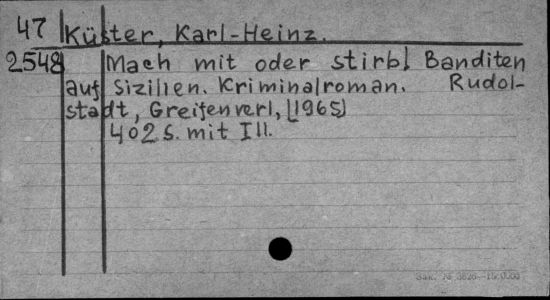 47 Küster, Karl-Heinz.
2548 Mach mit oder stirb! Banditen
auf Sizilien. Kriminalroman. Rudol-
stadt, Greifenverl, [1965]
402 S. mit Ill.